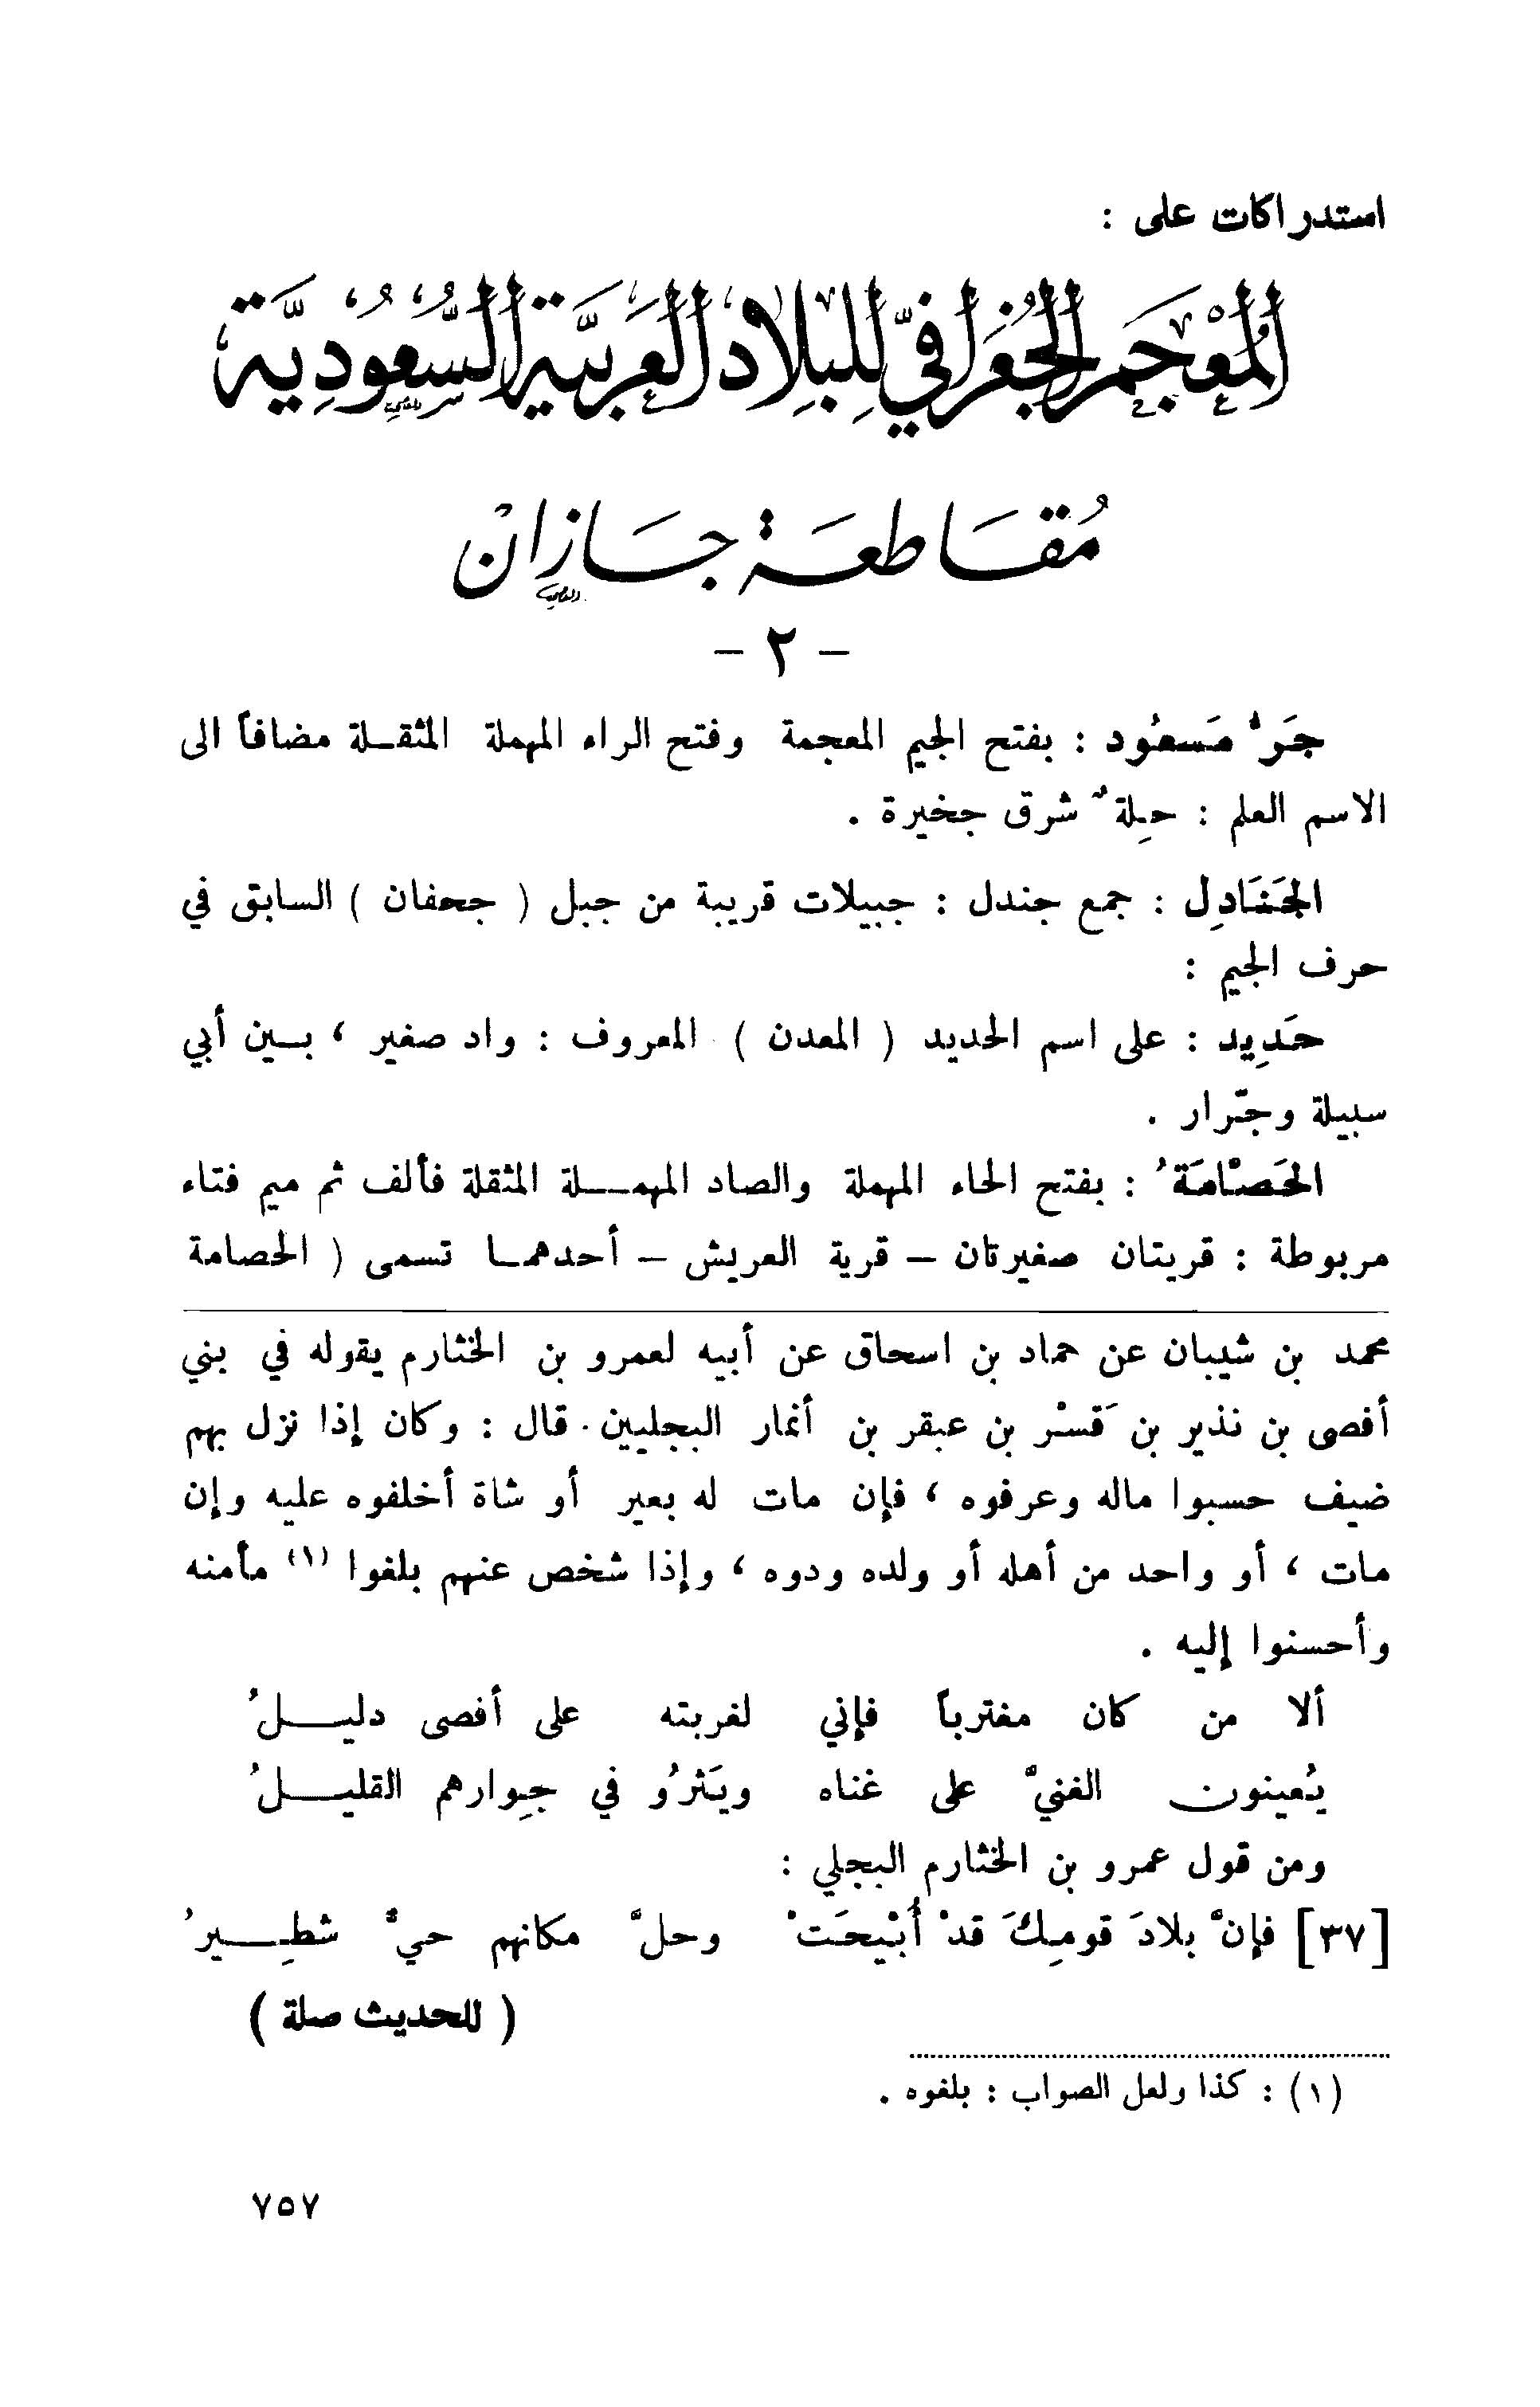 استدراكات على :
المُعْجَم الجُغرافيّ لِلبِلاد العَرَبيَّة السُّعُودِيَّة
مُقَاطعَة جَازان
- ٢ -
جَرُّ مَسعُود : بفتح الجيم المعجمة وفتح الراء المهملة المثقـلة مضافاً الى
الاسم العلم : حِلة ٌ شرق جخيرة .
الجَنَادِل : جمع جندل : جبيلات قريبة من جبل ( جحفان ) السابق في
حرف الجيم :
حَدِيد : على اسم الحديد ( المعدن ) المعروف : واد صغير ، بـين أبي
سبيلة وجرّار .
الحَصّامَة ُ : بفتح الحاء المهملة والصاد المهمـلة المثقلة فألف ثم ميم فتاء
مربوطة : قريتان صغيرتان – قرية العريش – أحدهمـا تسمى ( الحصامة
محمد بن شيبان عن حماد بن اسحاق عن أبيه لعمرو بن الخثارم يقوله في بني
أفصى بن نذير بن قَسْر بن عبقر بن أنمار البجليين . قال : وكان إذا نزل بهم
ضيف حسبوا ماله وعرفوه ، فإن مات له بعير أو شاة أخلفوه عليه وإن
مات ، أو واحد من أهله أو ولده ودوه ، وإذا شخص عنهم بلغوا (١) مأمنه
وأحسنوا إليه .
ألا من كان مغترباً فإني لغربته على أفصى دليـلُ
يُعينون الغنيَّ على غناه ويَثرُو في جِوارهم القليـلُ
ومن قول عمرو بن الخثارم البجلي :
[٣٧] فإنَّ بلادَ قومِكَ قدْ أُبْيحَتْ وحلَّ مكانهم حيٌّ شطِـيرُ
( للحديث صلة )
(١) : كذا ولعل الصواب : بلغوه .
٧٥٧